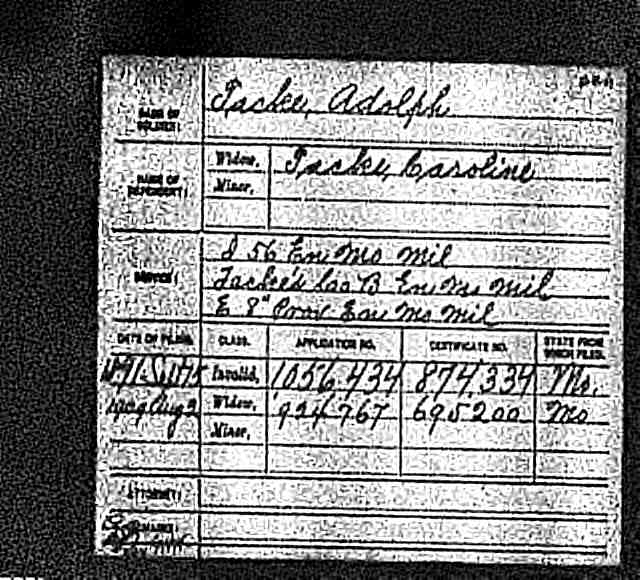 Tacke, Adolph
NAME OF
SOLDIER:
NAME OF
DEPENDENT:
Widow, Tacke, Caroline
Minor,
SERVICE:
I 56 Enr Mo Mil
Tacke's Co B Enr Mo Mil
E 8" Prov Enr Mo Mil
DATE OF FILING. CLASS. APPLICATION NO. CERTIFICATE NO. STATE FROM
WHICH FILED.
Invalid, 1056,434 874,334 Mo.
Aug 2 Widow, 924767 695200 Mo
Minor,
ATTORNEY:
REMARKS: